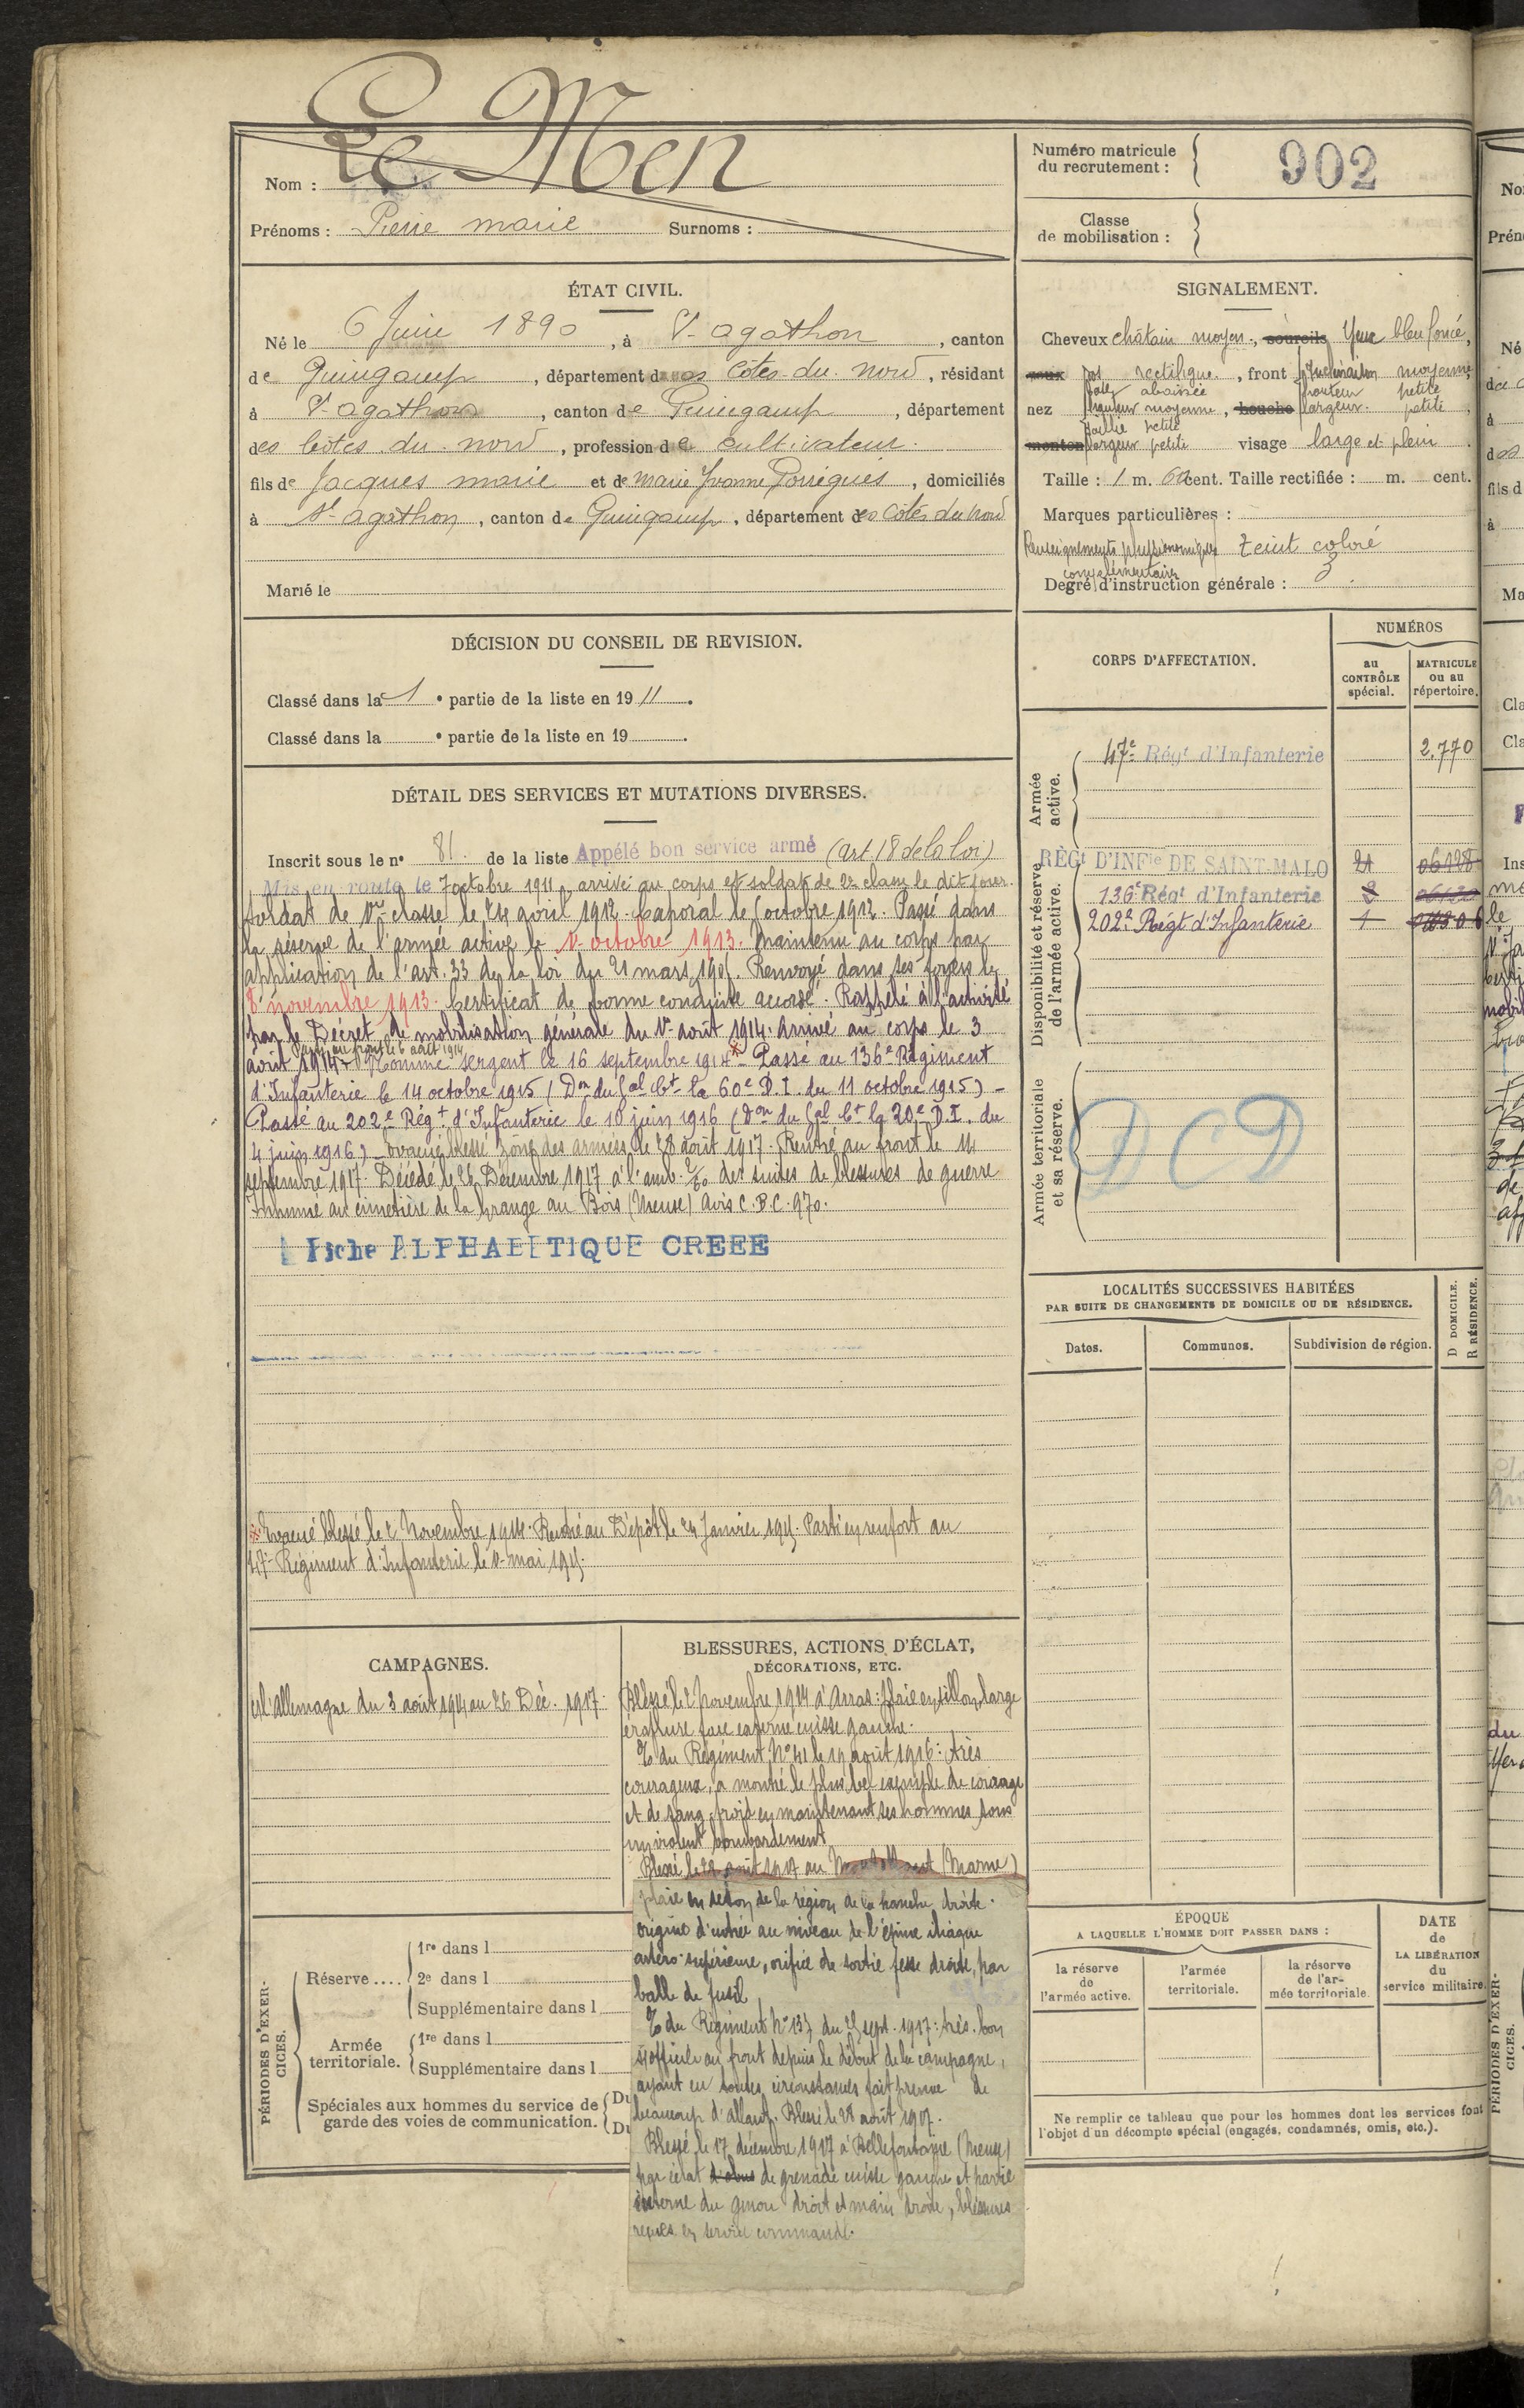 Nom : Le Men
Prénoms : Pierre marie Surnoms :
Numéro matricule
du recrutement : 902
Classe
de mobilisation :
ÉTAT CIVIL.
Né le 6 Juin 1890, à St-agathon, canton
de Guingamp, département des Côtes-du-nord, résidant
à St-agathon, canton de Guingamp, département
des Côtes du nord, profession de cultivateur.
fils de Jacques marie et de marie Yvonne, domiciliés
à St-agathon, canton de Guingamp, département des Côtes du nord
Marié le
SIGNALEMENT.
Cheveux châtain moyen, sourcils Yeux bleu foncé,
yeux dos rectiligne, front inclinaison moyenne
base abaissée hauteur petite
nez hauteur moyenne, bouche largeur petite,
saillie petite
menton largeur petite visage large et plein.
Taille : 1 m. 62 cent. Taille rectifiée : m. cent.
Marques particulières :
Renseignements physionomiques teint coloré
complémentaires
Degré d'instruction générale : 3.
DÉCISION DU CONSEIL DE REVISION.
Classé dans la 1e partie de la liste en 1911.
Classé dans la e partie de la liste en 19.
DÉTAIL DES SERVICES ET MUTATIONS DIVERSES.
Inscrit sous le n° 81. de la liste Appélé bon service armé (art. 18 de la loi)
Mis en route le 7 octobre 1911, arrivé au corps et soldat de 2e classe le dit jour.
Soldat de 1re classe le 24 avril 1912. Caporal le octobre 1912. Passé dans
la réserve de l'armée active le 1er octobre 1913. Maintenu au corps par
application de l'art. 33 de la loi du 21 mars 1905. Renvoyé dans ses foyers le
8 novembre 1913. Certificat de bonne conduite accordé. Rappelé à l'activité
par le Décret de mobilisation générale du 1er août 1914. Arrivé au corps le 3
Parti au front le 6 août 1914
août 1914. Nommé sergent le 16 septembre 1914 x. Passé au 136e Régiment
d'Infanterie le 14 octobre 1915 (Don du Gal Ct la 60e D.I. du 11 octobre 1915) -
Passé au 202e Régt d'Infanterie le 10 juin 1916 (Don du Gal Ct la 20e D.I. du
4 juin 1916) - Evacué blessé zône des armées le 28 août 1917. Rentré au front le 14
septembre 1917. Décédé le 26 Décembre 1917 à l'amb. des suites de blessures de guerre
Inhumé au cimetière de la Grange au Bois (Meuse) Avis C.B.C. 970.
Fiche ALPHABETIQUE CREEE
x Evacué blessé le 2 Novembre 1914. Rentré au Dépôt le 24 Janvier 1915. Parti en renfort au
47e Régiment d'Infanterie le 1er mai 1915.
CORPS D'AFFECTATION.
NUMÉROS
au
CONTRÔLE
spécial.
MATRICULE
ou au
répertoire.
Armée
active.
47e Régt d'Infanterie 2.770
Disponibilité et réserve
de l'armée active.
RÈGt D'INFie DE SAINT-MALO 21 06128
136e Régt d'Infanterie 8
202e Régt d'Infanterie 1
Armée territoriale
et sa réserve.
DCD
LOCALITÉS SUCCESSIVES HABITÉES
PAR SUITE DE CHANGEMENTS DE DOMICILE OU DE RÉSIDENCE.
Dates.
Communes.
Subdivision de région.
D DOMICILE.
R RÉSIDENCE.
CAMPAGNES.
C/ l'Allemagne du 3 août 1914 au 26 Déc. 1917.
BLESSURES, ACTIONS D'ÉCLAT,
DÉCORATIONS, ETC.
Blessé le 2 novembre 1914 à Arras : plaie en sillon, large
éraflure face externe cuisse gauche.
% du Régiment N° 41 le 19 août 1916 : Très
courageux, a montré le plus bel exemple de courage
et de sang froid en maintenant ses hommes sous
un violent bombardement
Blessé le 28 août 1917 au (Marne)
plaie en séton de la région de la hanche droite.
origine d'entrée au niveau de l'épine iliaque
antéro-supérieure, orifice de sortie fesse droite, par
balle de fusil
% du Régiment n° 137 du 25 sept. 1917 : très bon
s/officier au front depuis le début de la campagne,
ayant en toutes circonstances fait preuve de
beaucoup d'allant. Blessé le 28 août 1917.
Blessé le 17 décembre 1917 à Bellefontaine (Meuse)
par éclat d'obus de grenade cuisse gauche et partie
interne du genou droit et main droite, blessures
reçues en service commandé.
PÉRIODES D'EXER-
CICES.
Réserve....
1re dans l
2e dans l
Supplémentaire dans l
Armée
territoriale.
1re dans l
Supplémentaire dans l
Spéciales aux hommes du service de
garde des voies de communication.
Du
Du
ÉPOQUE
A LAQUELLE L'HOMME DOIT PASSER DANS :
la réserve
de
l'armée active.
l'armée
territoriale.
la réserve
de l'ar-
mée territoriale.
DATE
de
LA LIBÉRATION
du
service militaire.
Ne remplir ce tableau que pour les hommes dont les services font
l'objet d'un décompte spécial (engagés, condamnés, omis, etc.).